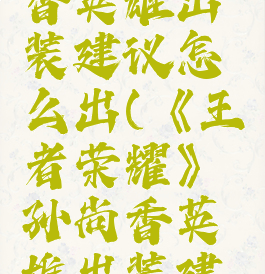 香英雄出
装建议怎
么出(《王
者荣耀》
孙尚香英
雄出装建